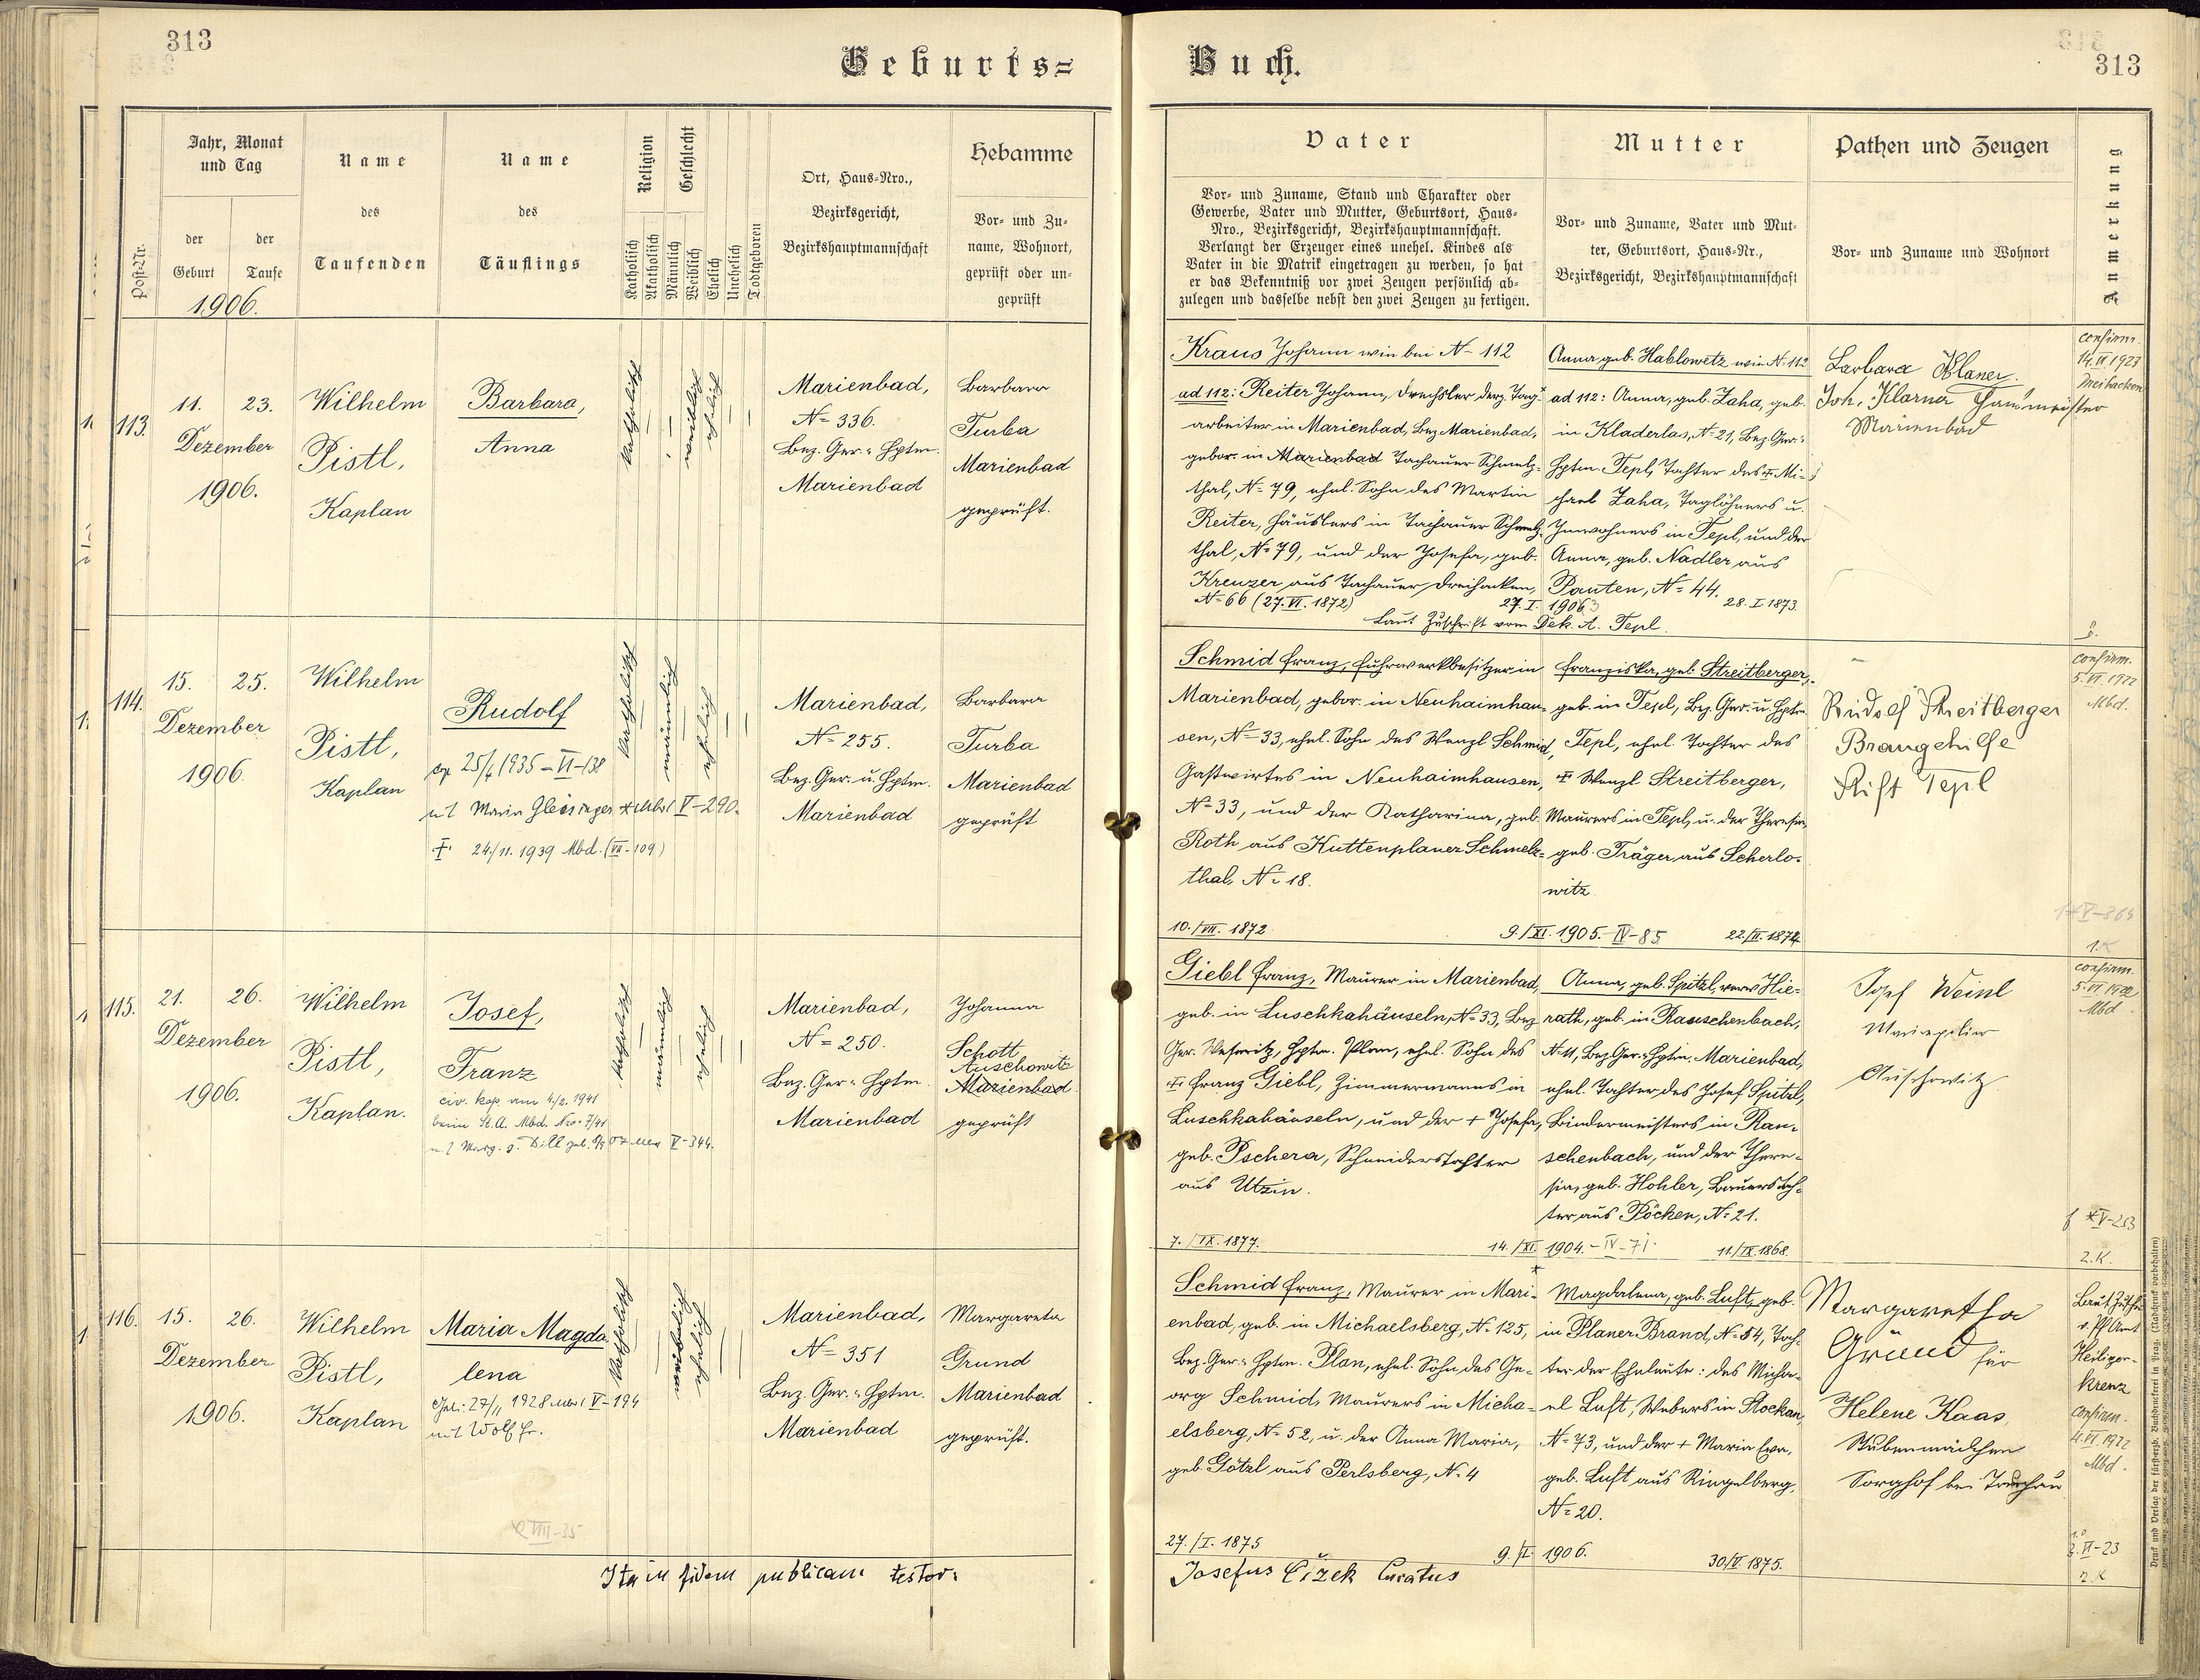 313
Geburts=
Jahr, Monat
und Tag
der
Geburt
der
Taufe
1906.
Post-Nr.
Name
des
Taufenden
Name
des
Täuflings
Religion
Katholisch
Akatholisch
Geschlecht
Männlich
Weiblich
Ehelich
Unehelich
Todtgeboren
Ort, Haus-Nro.,
Bezirksgericht,
Bezirkshauptmannschaft
Hebamme
Vor- und Zu-
name, Wohnort,
geprüft oder un-
geprüft
113.
11. 23.
Dezember
1906.
Wilhelm
Pistl,
Kaplan
Barbara,
Anna
katholisch
weiblich
ehelich
Marienbad,
No 336.
Bez. Ger. u. Hptm.
Marienbad
Barbara
Turba
Marienbad
geprüft.
114.
15. 25.
Dezember
1906.
Wilhelm
Pistl,
Kaplan
Rudolf
cop. 25/4 1935 = VI-138
mit Maria Gleissinger V-290.
† 24./11. 1939 Mbd. (VII-109)
katholisch
männlich
ehelich
Marienbad,
No 255.
Bez. Ger. u. Hptm.
Marienbad
Barbara
Turba
Marienbad
geprüft
115.
21. 26.
Dezember
1906.
Wilhelm
Pistl,
Kaplan.
Josef,
Franz
civ. kop. am 4/2. 1941
beim St. A. Mbd. Nro. 7/41
V-344.
katholisch
männlich
ehelich
Marienbad,
No 250.
Bez. Ger. u. Hptm.
Marienbad
Johanna
Schott
Auschowitz
Marienbad
geprüft
116.
15. 26.
Dezember
1906.
Wilhelm
Pistl,
Kaplan
Maria Magda
lena
27/11 1928 V-194
mit Wolf Fr.
VIII-35
katholisch
weiblich
ehelich
Marienbad,
No 351
Bez. Ger. u. Hptm.
Marienbad
Margareta
Grund
Marienbad
geprüft.
Ita in fidem publicam testor:
313
Buch.
Vater
Vor- und Zuname, Stand und Charakter oder
Gewerbe, Vater und Mutter, Geburtsort, Haus-
Nro., Bezirksgericht, Bezirkshauptmannschaft.
Verlangt der Erzeuger eines unehel. Kindes als
Vater in die Matrik eingetragen zu werden, so hat
er das Bekenntniß vor zwei Zeugen persönlich ab-
zulegen und dasselbe nebst den zwei Zeugen zu fertigen.
Mutter
Vor- und Zuname, Vater und Mut-
ter, Geburtsort, Haus-Nr.,
Bezirksgericht, Bezirkshauptmannschaft
Pathen und Zeugen
Vor- und Zuname und Wohnort
Anmerkung
Kraus Johann wie bei No 112
ad 112: Reiter Johann, Drechsler derz. Tag-
arbeiter in Marienbad, Bez. Marienbad,
gebor. in Marienbad Tachauer Schmelz-
thal, No 79, ehel. Sohn des Martin
Reiter, Häuslers in Tachauer Schmelz-
thal, No 79, und der Josefa, geb.
Kreuzer aus Tachauer Dreihacken,
No 66 (27. VI. 1872)
27. I. 1906
Laut Zuschrift vom Dek. A. Tepl.
Anna geb. Hablowetz wie No 112
ad 112: Anna, geb. Zaha, geb.
in Kladerlas, No 21, Bez. Ger. u.
Hptm. Tepl, Tochter des † Mi-
chael Zaha, Taglöhners u.
Inwohners in Tepl, und der
Anna, geb. Nadler aus
Pauten, No 44.
28. I. 1873.
Barbara Klaner.
Joh. Klarna Hausmeister
Marienbad
confirm.
14. VI. 1923
Dreihacken
Schmid Franz, Fuhrwerkbesitzer in
Marienbad, gebor. in Neuhaimhau-
sen, No 33, ehel. Sohn des Wenzl Schmid,
Gastwirtes in Neuhaimhausen,
No 33, und der Katharina, geb.
Roth aus Kuttenplaner Schmelz-
thal, No 18.
10./VII. 1872
9./XI. 1905. - IV-85
Franziska, geb. Streitberger,
geb. in Tepl, Bez. Ger. u. Hptm.
Tepl, ehel. Tochter des
† Wenzl Streitberger,
Maurers in Tepl, u. der Theresia,
geb. Träger aus Scherlo-
witz.
22./II. 1874
Rudolf Streitberger
Braugehilfe
Stift Tepl
confirm.
5. VI. 1922
Mbd.
V-364
1. K
Giebl Franz, Maurer in Marienbad,
geb. in Luschkahäuseln, No 33, Bez.
Ger. Weseritz, Hptm. Plan, ehel. Sohn des
† Franz Giebl, Zimmermanns in
Luschkahäuseln, und der + Josefa,
geb. Pschera, Schneiderstochter
aus Utzin.
7./IX. 1877.
14./XI. 1904. - IV-71.
Anna, geb. Spitzl, verw. Hie-
rath, geb. in Rauschenbach,
No 11, Bez. Ger. u. Hptm. Marienbad,
ehel. Tochter des Josef Spitzl,
Bindermeisters in Rau-
schenbach, und der There-
sia, geb. Hohler, Bauerstoch-
ter aus Pöcken, No 21.
11./IX. 1868.
Josef Weinl
Maurerpolier
Auschowitz
confirm.
5. VI. 1922
Mbd.
V-253
2. K.
Schmid Franz, Maurer in Mari-
enbad, geb. in Michaelsberg, No 125,
Bez. Ger. u. Hptm. Plan, ehel. Sohn des Ge-
org Schmid, Maurers in Micha-
elsberg, No 52, u. der Anna Maria,
geb. Götzl aus Perlsberg, No 4
27./I. 1875
9./I. 1906.
Magdalena, geb. Luft, geb.
in Planer-Brand, No 54, Toch-
ter der Eheleute: des Micha-
el Luft, Webers in Stockau,
No 73, und der + Maria Eva,
geb. Luft aus Ringelberg,
No 20.
30/V. 1875.
Margaretha
Grund für
Helene Kaas,
Stubenmädchen
Sorghof bei Tachau
Laut Zuschr.
v. Pf. Amt
Heiligen-
kreuz
confirm.
4. VI. 1922
Mbd.
VI-23
2. K
Josefus Čížek Curatus
Druck und Verlag der fürsterzb. Buchdruckerei in Prag. (Nachdruck vorbehalten)